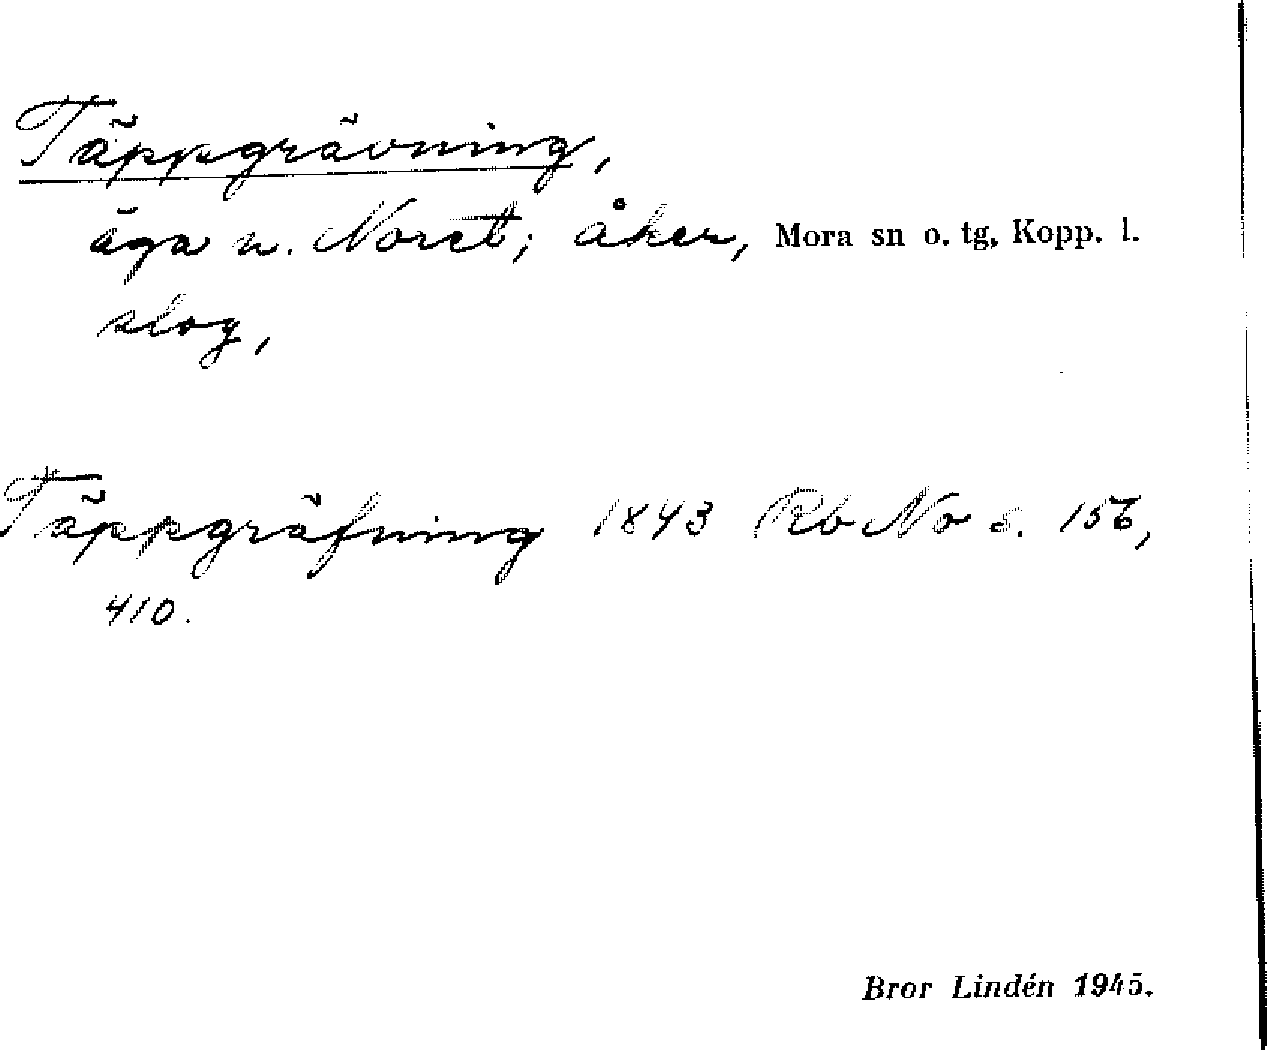 Täppgrävning,
äga u. Noret; åker, Mora sn o. tg, Kopp. l.
slog,
Täppgräfning 1843 Rb No s. 156,
410.
Bror Lindén 1945.